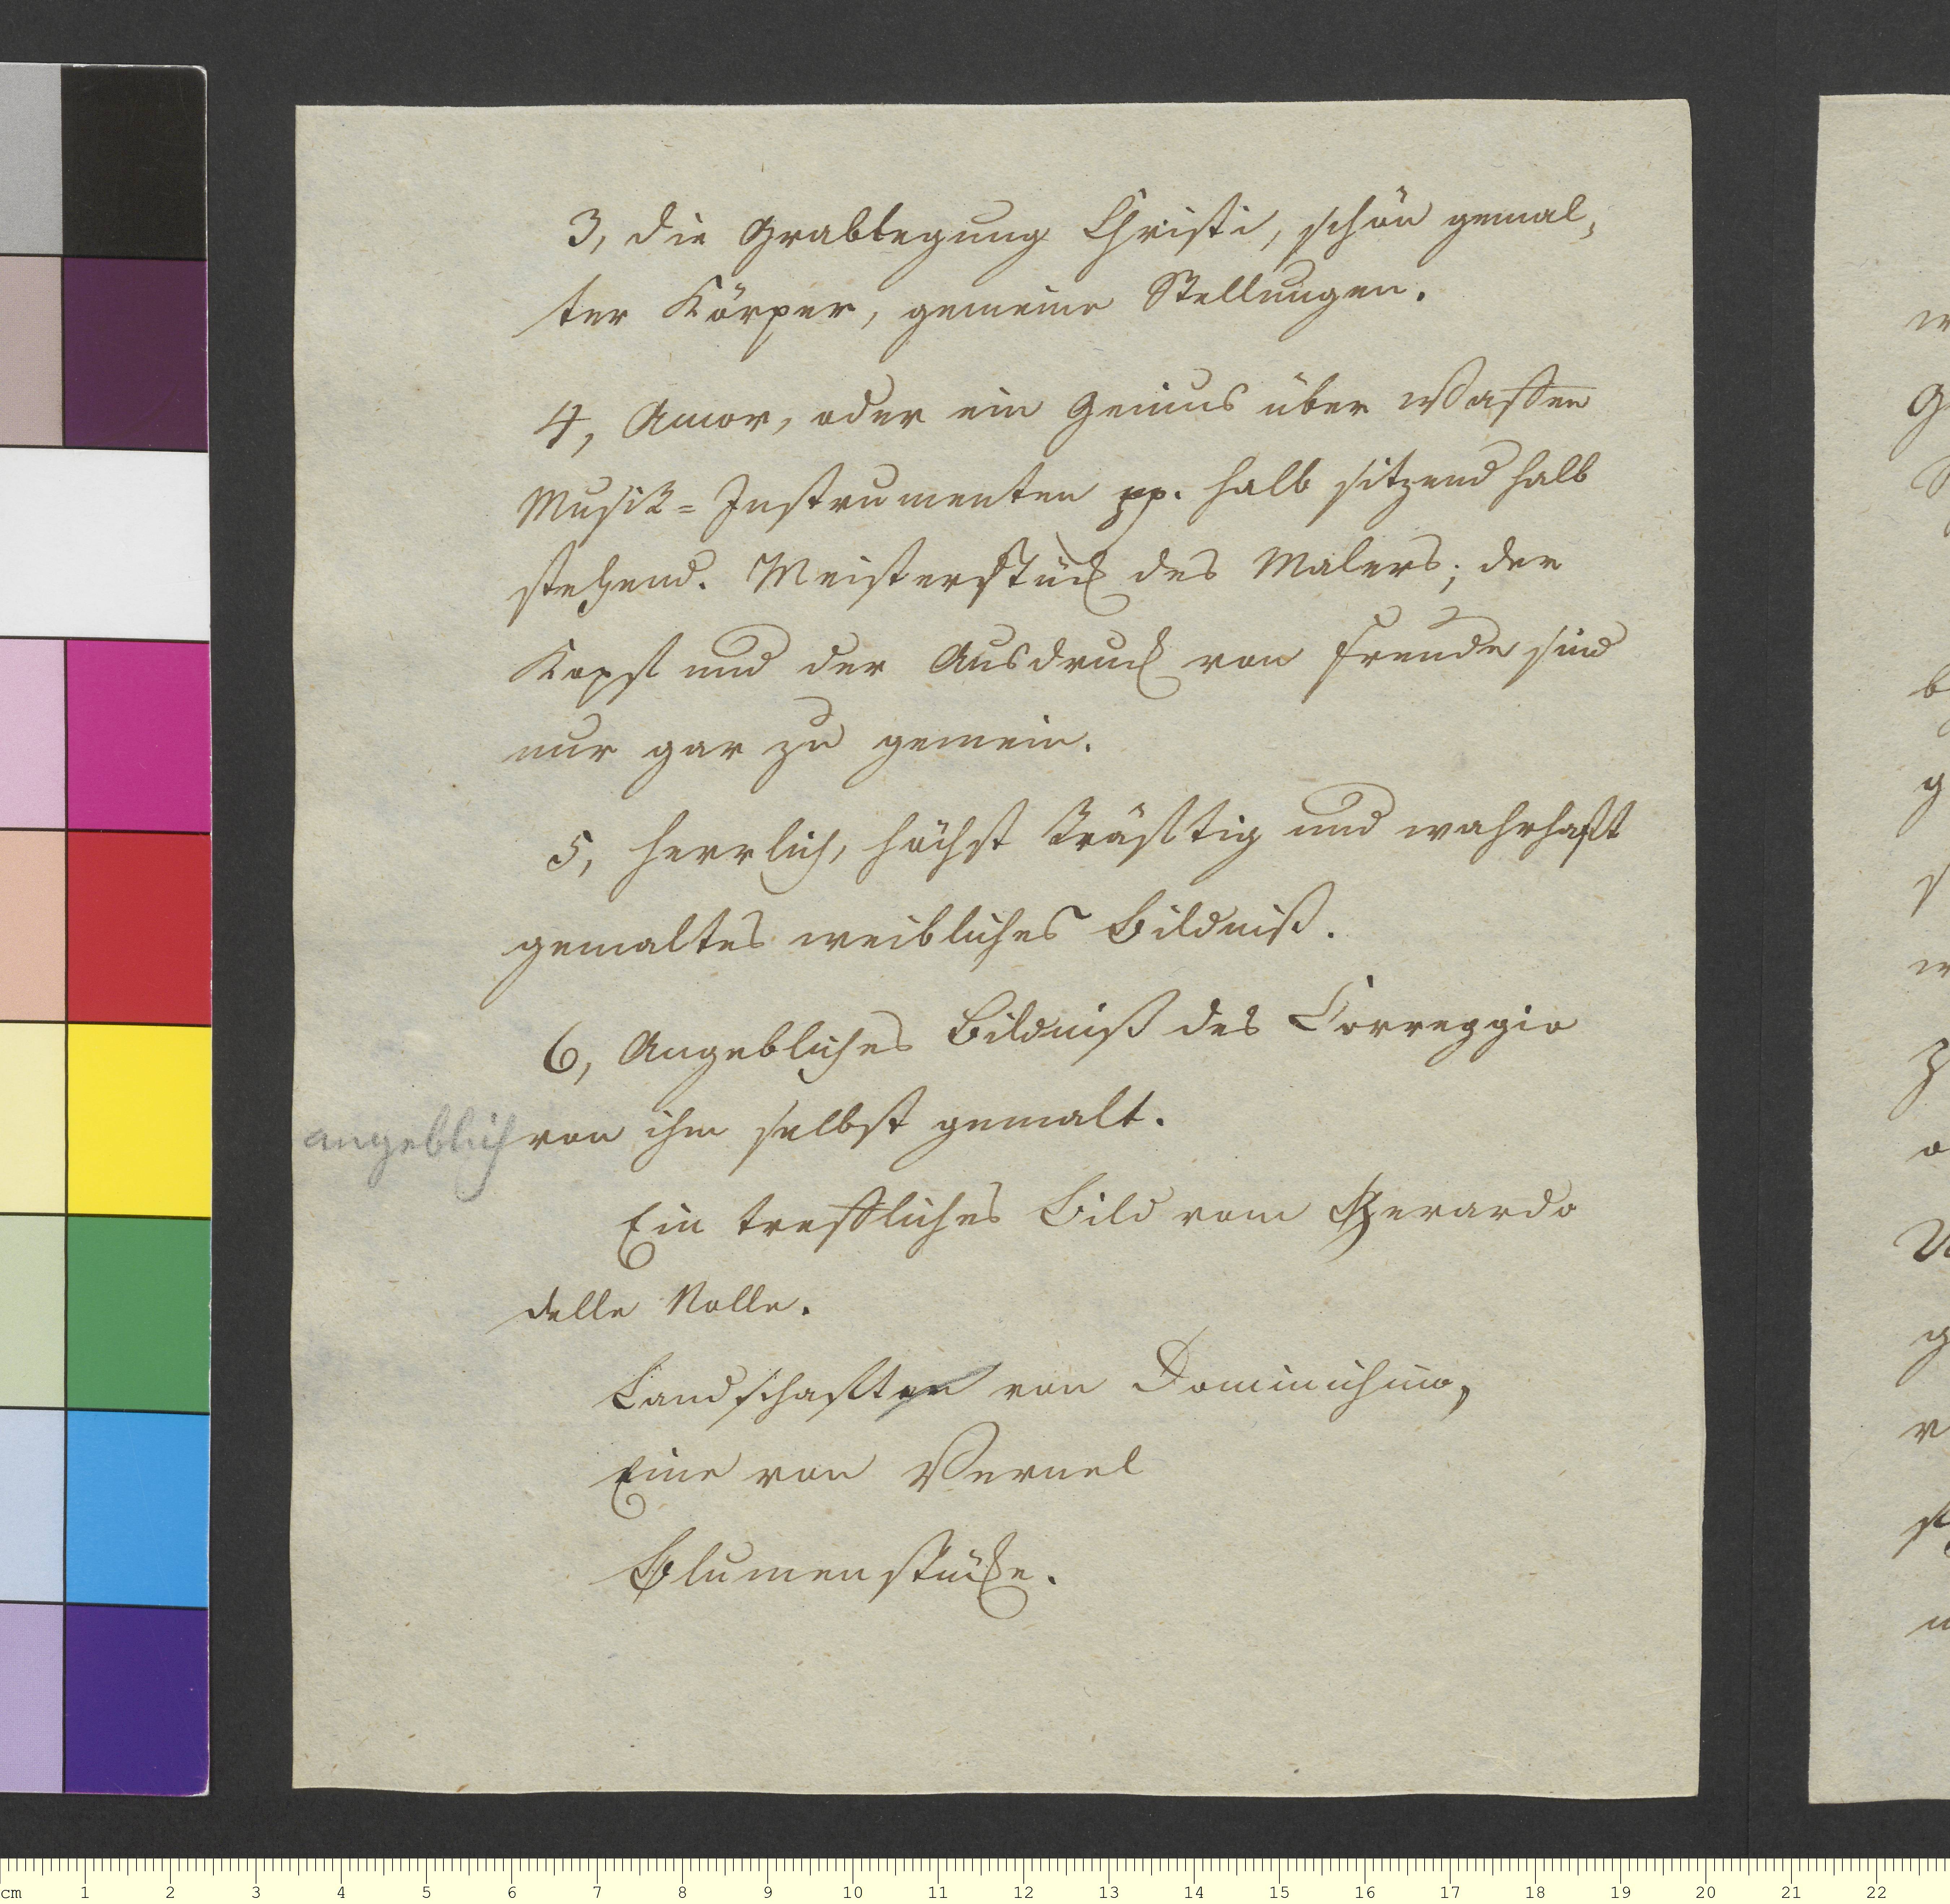 3, die Grablegung Christi, schön gemal,
ter Körper, gemeine Stellungen.
4, Amor, oder ein Genius über Waffen
Musik=Instrumenten pp. halb sitzend halb
stehend. Meisterstück des Malers; der
Kopf und der Ausdruck von Freude sind
nur gar zu gemein.
5, herrlich, höchst kräftig und wahrhaft
gemaltes weibliches Bildniß.
6, Angebliches Bildniß des Correggio
angeblich von ihm selbst gemalt.
Ein treffliches Bild vom Gherardo
delle Notte.
Landschaften von Dominichino,
Eine von Vernet
Blumenstücke.